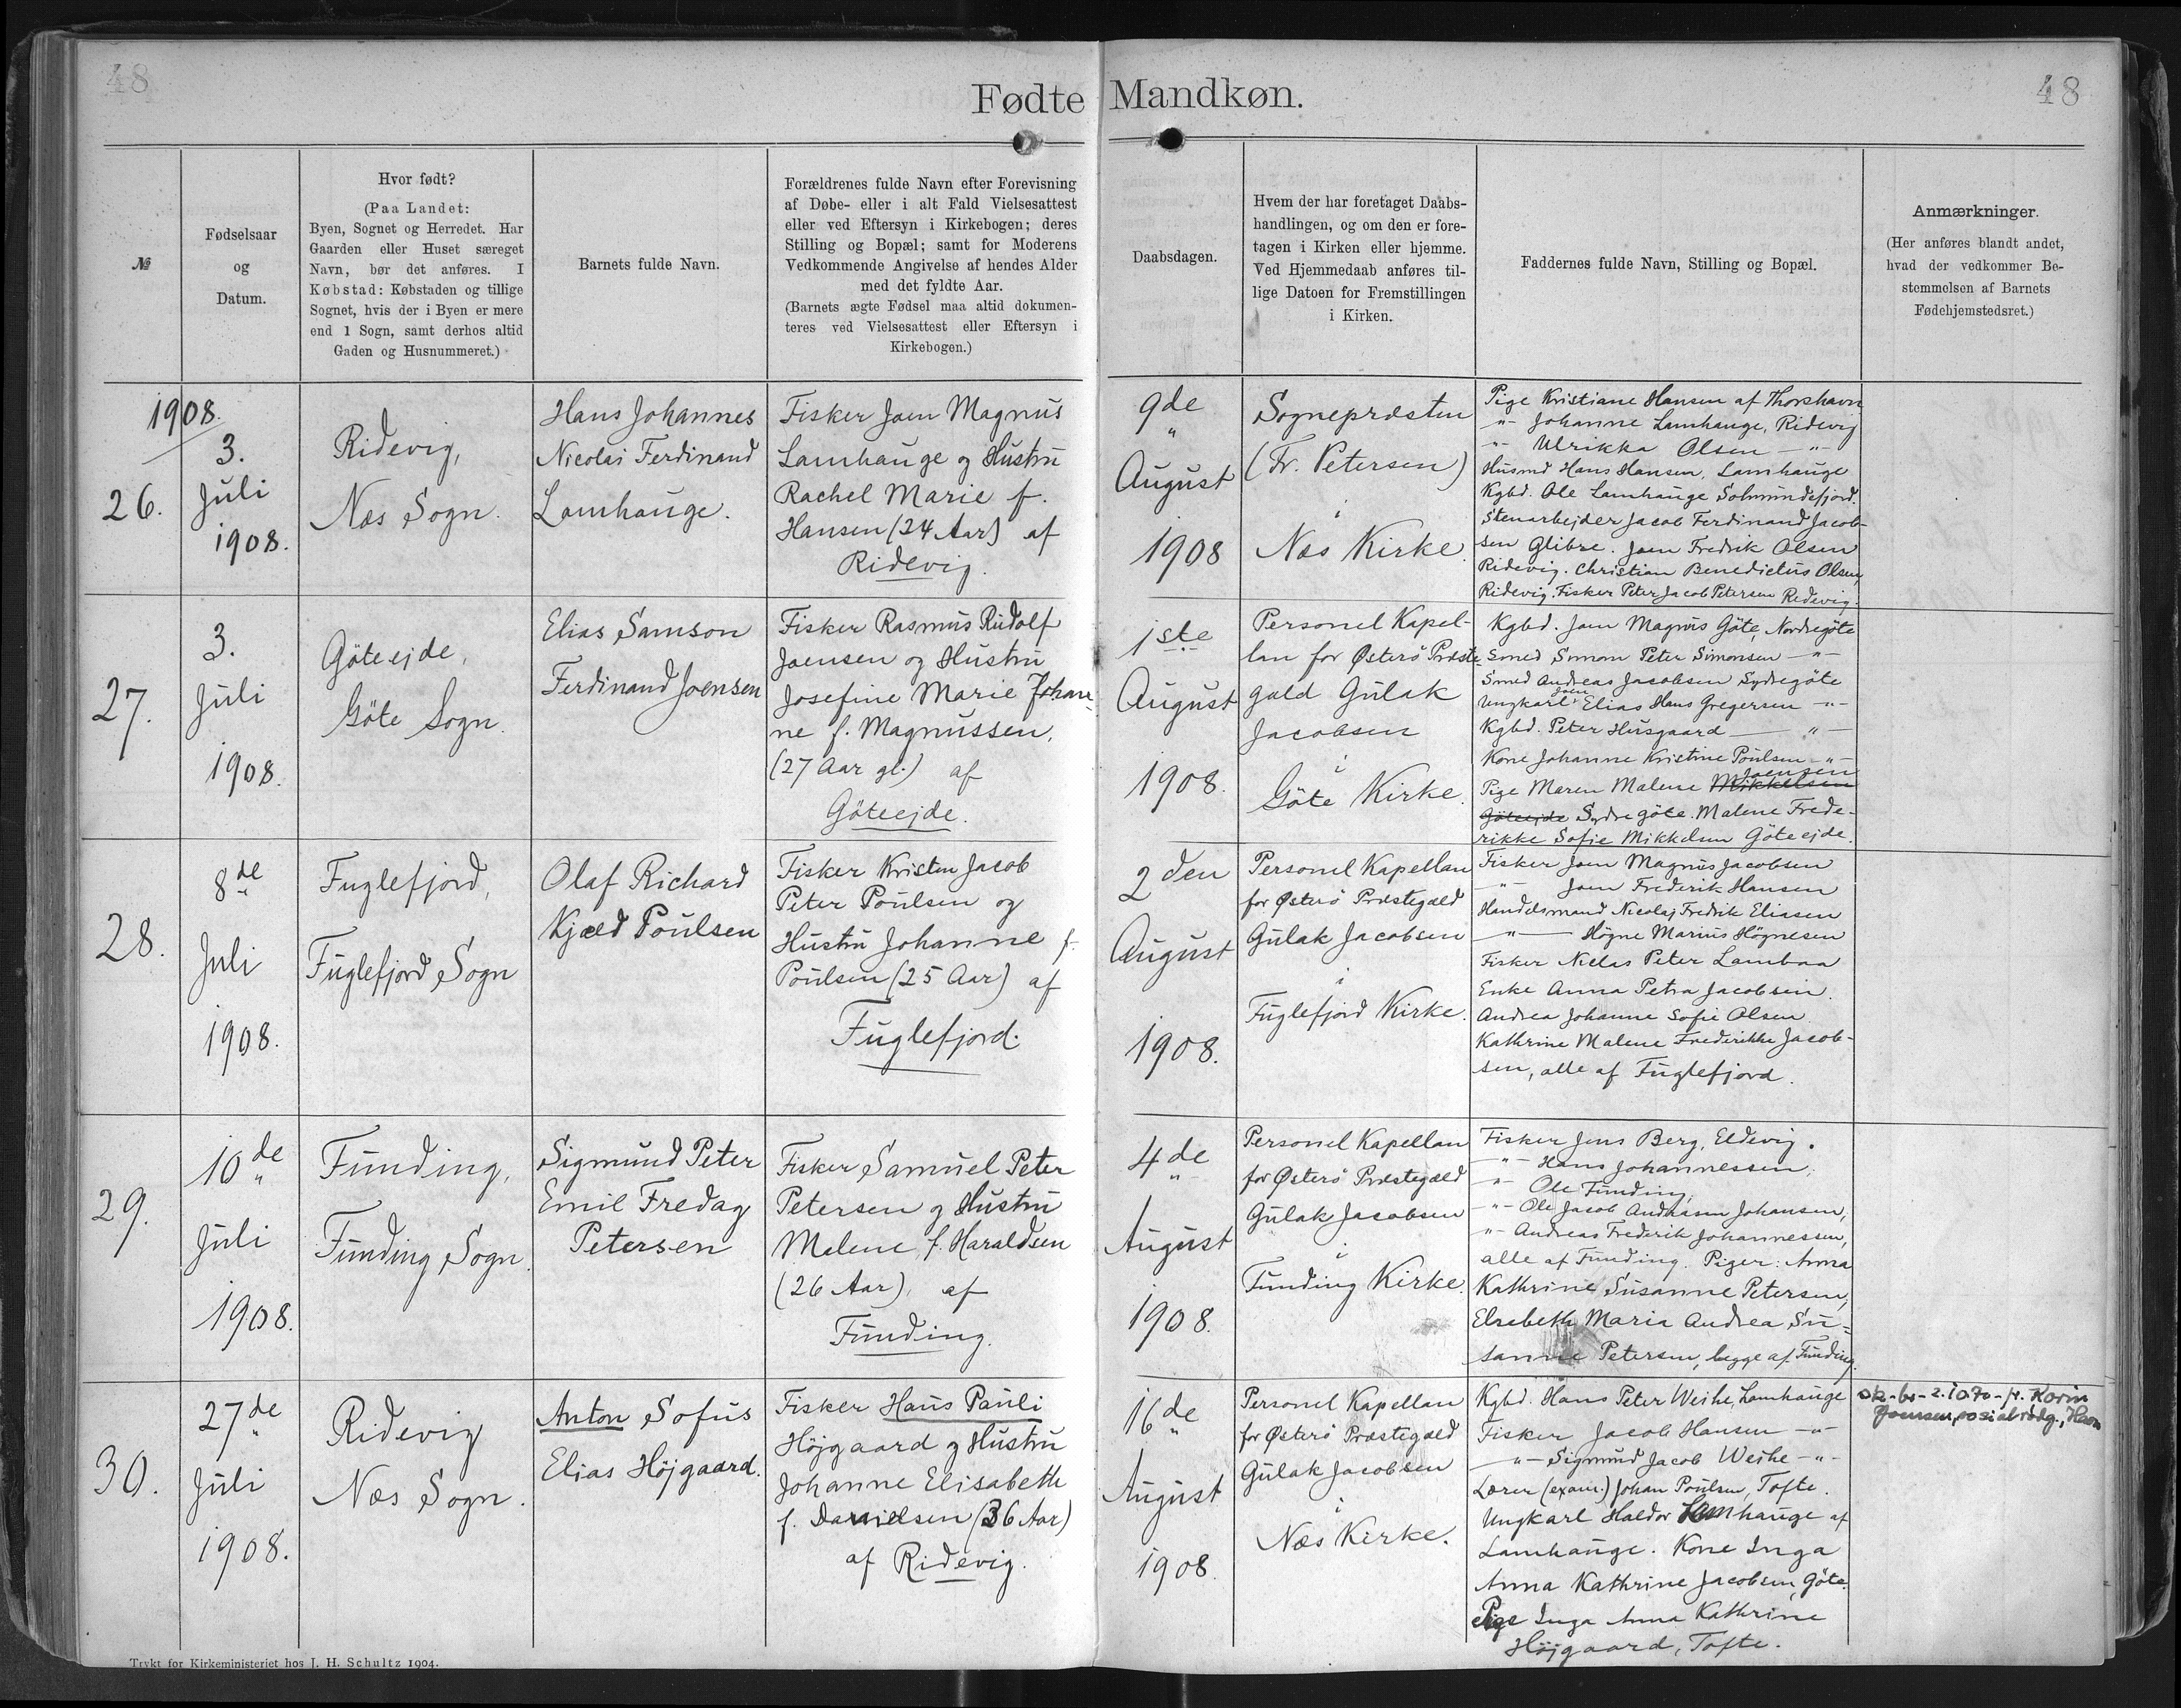 48
Fødte Mandkøn.
48
№
Fødselsaar
og
Datum.
Hvor født?
(Paa Landet:
Byen, Sognet og Herredet. Har
Gaarden eller Huset særeget
Navn, bør det anføres. I
Købstad: Købstaden og tillige
Sognet, hvis der i Byen er mere
end 1 Sogn, samt derhos altid
Gaden og Husnummeret.)
Barnets fulde Navn.
Forældrenes fulde Navn efter Forevisning
af Døbe- eller i alt Fald Vielsesattest
eller ved Eftersyn i Kirkebogen; deres
Stilling og Bopæl; samt for Moderens
Vedkommende Angivelse af hendes Alder
med det fyldte Aar.
(Barnets ægte Fødsel maa altid dokumen-
teres ved Vielsesattest eller Eftersyn i
Kirkebogen.)
Daabsdagen.
Hvem der har foretaget Daabs-
handlingen, og om den er fore-
tagen i Kirken eller hjemme.
Ved Hjemmedaab anføres til-
lige Datoen for Fremstillingen
i Kirken.
Faddernes fulde Navn, Stilling og Bopæl.
Anmærkninger.
(Her anføres blandt andet,
hvad der vedkommer Be-
stemmelsen af Barnets
Fødehjemstedsret.)
1908.
26.
3.
Juli
1908.
Ridevig,
Næs Sogn.
Hans Johannes
Nicolai Ferdinand
Lamhauge.
Fisker Joen Magnus
Lamhauge og Hustru
Rachel Marie f.
Hansen (24 Aar) af
Ridevig.
9de
August
1908
Sognepræsten
(Fr. Petersen)
i
Næs Kirke.
Pige Kristiane Hansen af Thorshavn
-"- Johanne Lamhauge, Ridevig
-"- Ulrikka Olsen -"-
Husmd Hans Hansen, Lamhauge
Kgbd. Ole Lamhauge Solmundefjord.
Stenarbejder Jacob Ferdinand Jacob-
sen Glibre. Joen Fredrik Olsen
Ridevig. Christian Benedictus Olsen,
Ridevig. Fisker Peter Jacob Petersen Ridevig.
27.
3.
Juli
1908.
Göteejde,
Göte Sogn.
Elias Samson
Ferdinand Joensen
Fisker Rasmus Rudolf
Joensen og Hustru
Josefine Marie Johan-
ne f. Magnussen,
(27 Aar gl.) af
Göteejde.
1ste
August
1908.
Personel Kapel-
lan for Østerö Præste-
gæld Gulak
Jacobsen
i
Göte Kirke.
Kgbd. Joen Magnus Göte, Nordregöte
Smed Simon Peter Simonsen -"-
Smed Andreas Jacobsen Sydregöte
Joen
Ungkarl Elias Hans Gregersen -"-
Kgbd. Peter Husgaard -"-
Kone Johanne Kristine Poulsen -"-
Joensen
Pige Maren Malene Mikkelsen
Göteejde Sydregöte. Malene Frede-
rikke Sofie Mikkelsen Göteejde.
28.
8de
Juli
1908.
Fuglefjord,
Fuglefjord Sogn
Olaf Richard
Kjæld Poulsen
Fisker Kristen Jacob
Peter Poulsen og
Hustru Johanne f.
Poulsen (25 Aar) af
Fuglefjord.
2den
August
1908.
Personel Kapellan
for Østerö Præstegæld
Gulak Jacobsen
i
Fuglefjord Kirke.
Fisker Joen Magnus Jacobsen
-"- Joen Frederik Hansen
Handelsmand Nicolaj Fredrik Eliasen
-"- Högne Marius Högnesen
Fisker Nielas Peter Lambaa
Enke Anna Petra Jacobsen.
Andrea Johanne Sofie Olsen.
Kathrine Malene Frederikke Jacob-
sen, alle af Fuglefjord.
29.
10de
Juli
1908.
Funding,
Funding Sogn.
Sigmund Peter
Emil Fredag
Petersen
Fisker Samuel Peter
Petersen og Hustru
Malene f. Haraldsen
(26 Aar), af
Funding.
4de
August
1908.
Personel Kapellan
for Østerö Præstegæld
Gulak Jacobsen
i
Funding Kirke.
Fisker Jens Berg, Eldevig.
-"- Hans Johannessen,
-"- Ole Funding,
-"- Ole Jacob Johansen,
-"- Andreas Frederik Johannessen,
alle af Funding. Piger: Anna
Kathrine Susanne Petersen,
Elsebeth Maria Andrea Su=
sanne Petersen, begge af Funding.
30.
27de
Juli
1908.
Ridevig
Næs Sogn.
Anton Sofus
Elias Höjgaard.
Fisker Hans Pauli
Höjgaard og Hustru
Johanne Elisabeth
f. Danielsen (36 Aar)
af Ridevig.
16de
August
1908.
Personel Kapellan
for Østerö Præstegæld
Gulak Jacobsen
i
Næs Kirke.
Kgbd. Hans Peter Weihe, Lamhauge
Fisker Jacob Hansen -"-
-"- Sigmund Jacob Weihe -"-
Lærer (exam.) Johan Poulsen, Tofte.
Ungkarl Haldor Lamhauge af
Lamhauge. Kone Inga
Anna Kathrine Jacobsen, Göte.
Pige Inga Anna Kathrine
Höjgaard, Tofte.
2.10 70 Karin
Joensen,
Trykt for Kirkeministeriet hos J. H. Schultz 1904.